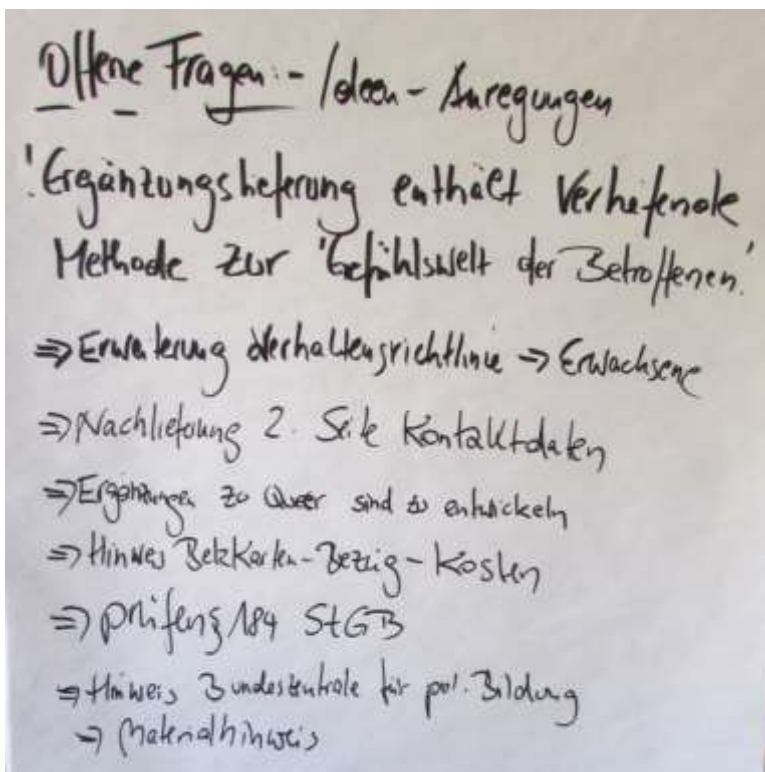 Offene Fragen - Ideen - Anregungen
! Ergänzungslieferung enthält
Methode zur 'Gefühlswelt der Betroffenen'
⇒ Erweiterung Verhaltensrichtlinie → Erwachsene
⇒ Nachlieferung 2. Seite Kontaktdaten
⇒ Ergänzungen zu Queer sind zu entwickeln
⇒ Hinweis -Bezug-Kosten
⇒ prüfen § 184 StGB
⇒ Hinweis Bundeszentrale für pol. Bildung
→ Materialhinweis